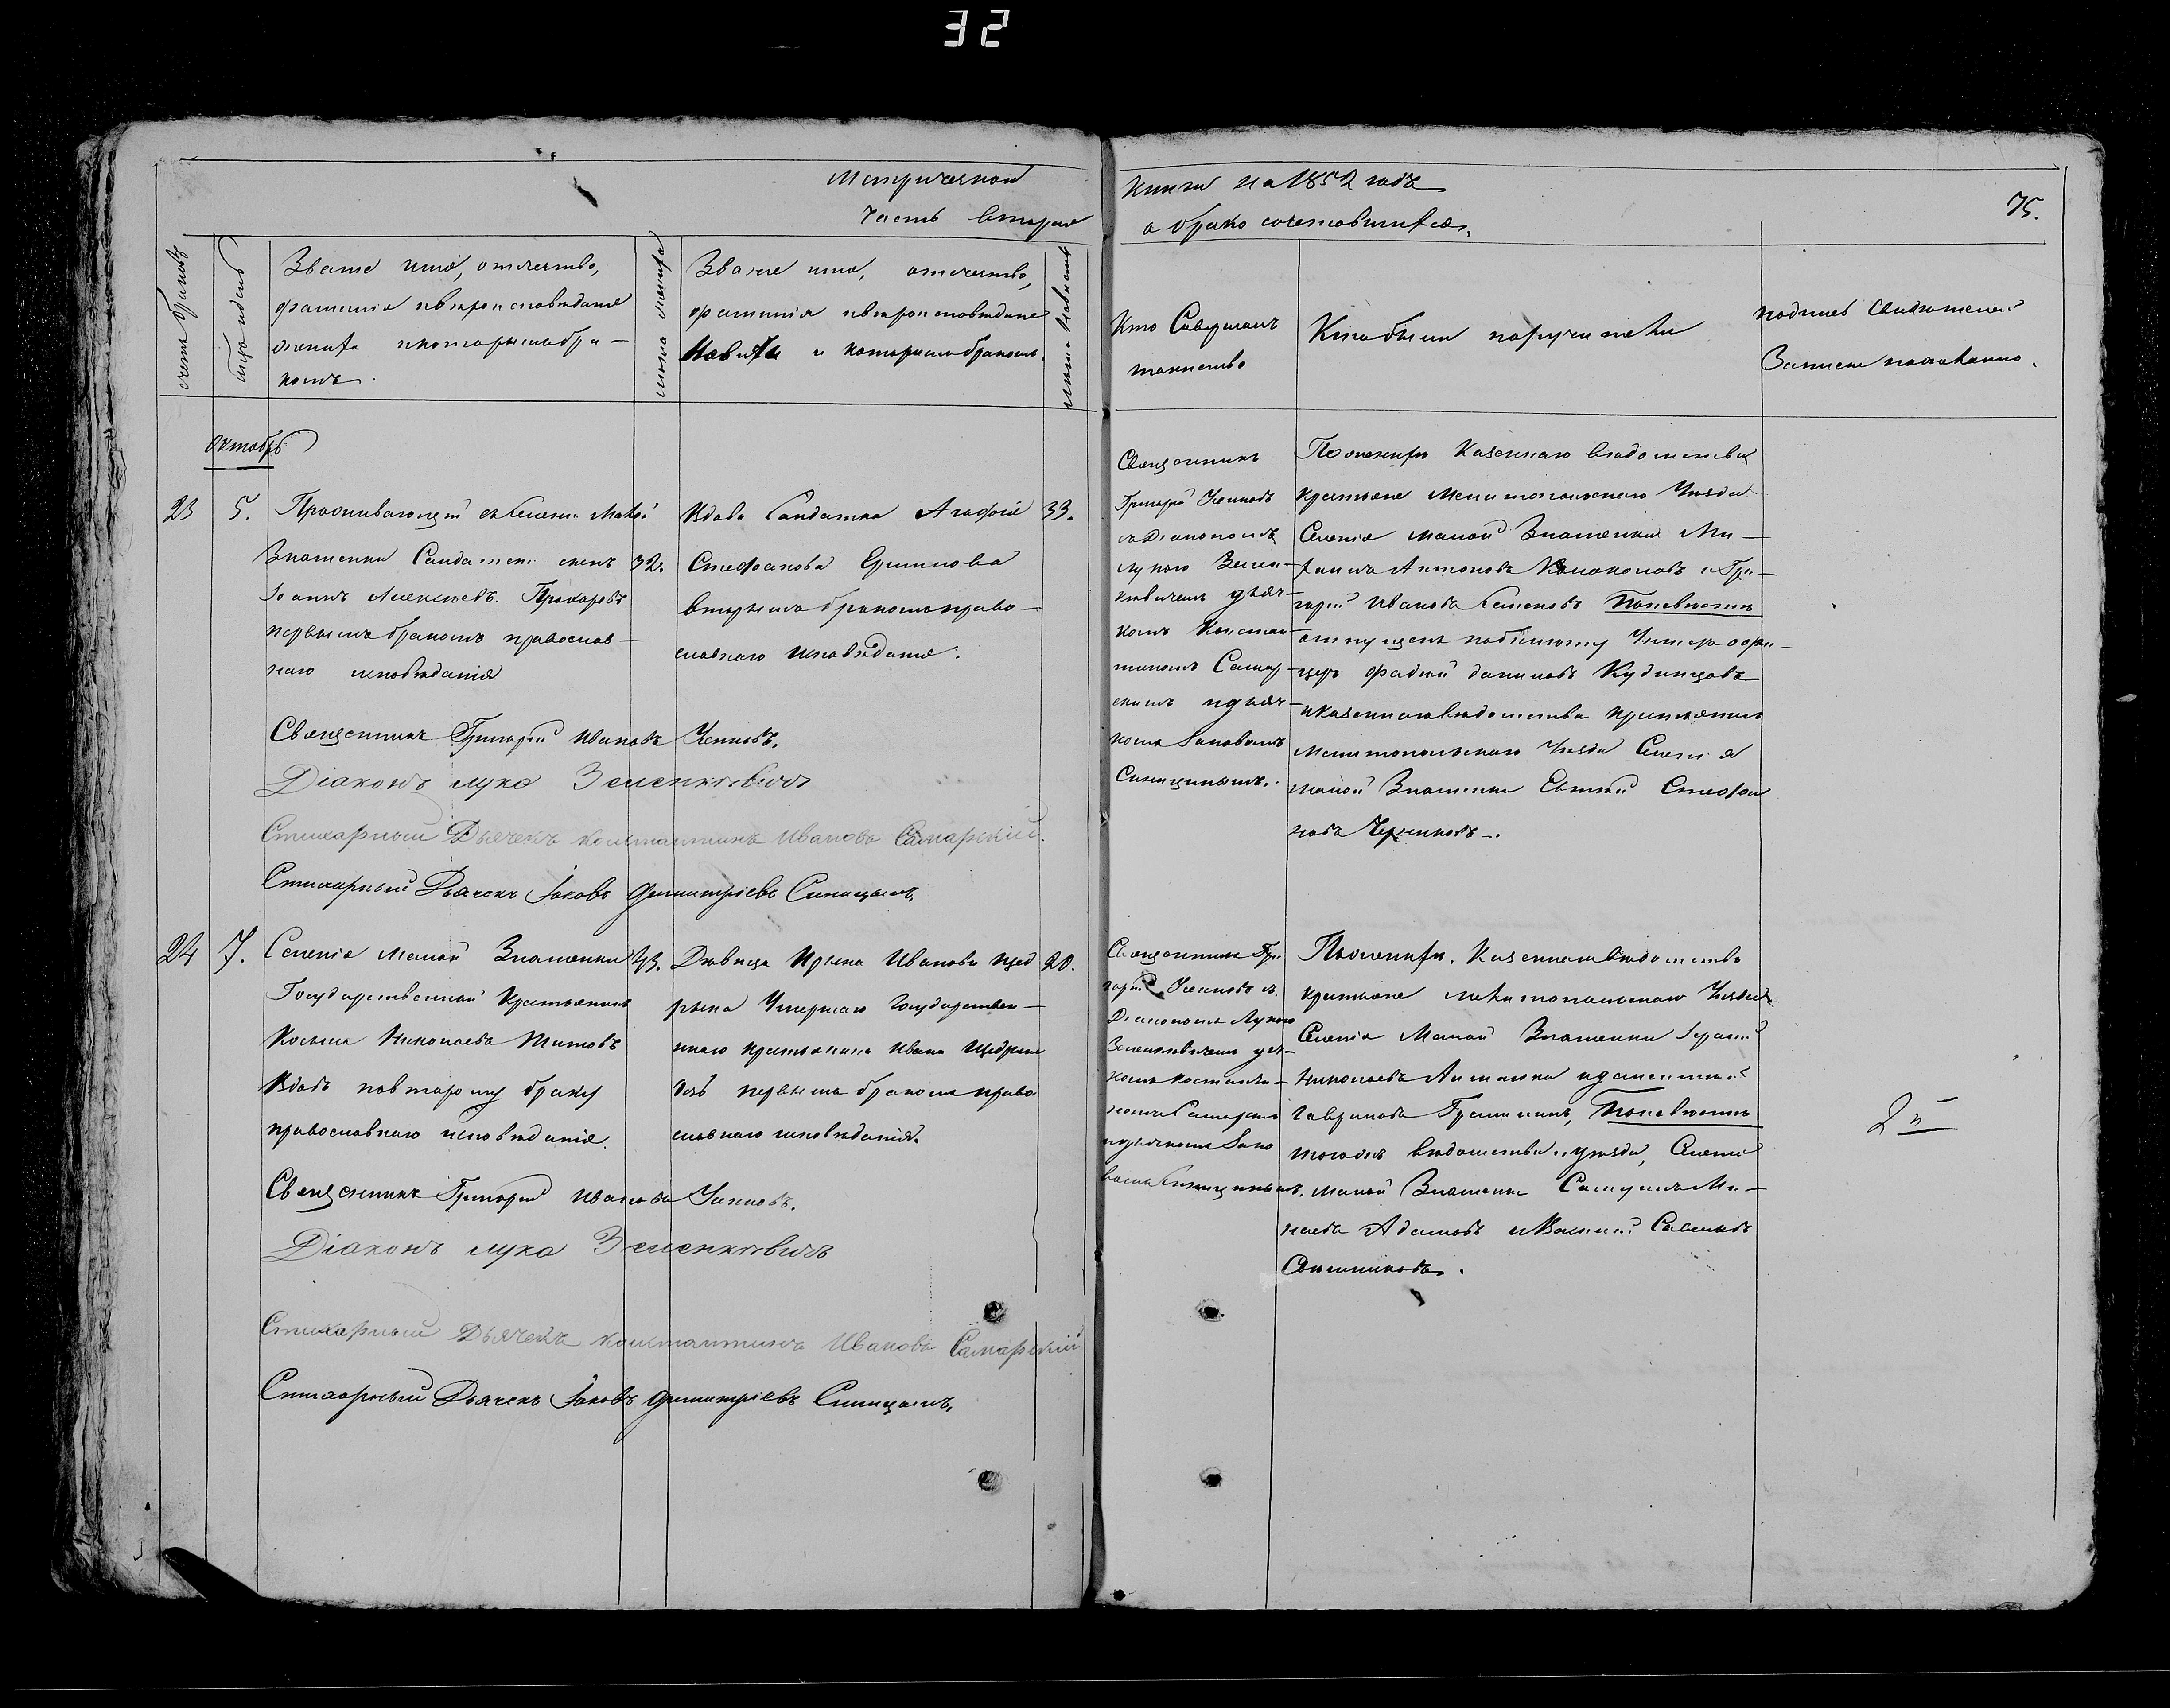 32
Метрической
Часть вторая
книги на 1852 годъ
о бракосочетавшихся.
75.
счетъ браковъ
Званіе имя, отчество,
фамилія и вѣроисповѣданіе
жениха и которымъ бра-
комъ.
лѣта жениха
Званіе имя, отчество,
фамилія и вѣроисповѣданіе
Невѣсты и которымъ бракомъ.
лѣта невѣсты
Кто Совершалъ
таинство
Кто были поручители
подпись свидѣтелей
Записи по желанію.
Октябрь
23
5.
Проживающій въ Селеніи Малой
Знаменки Солдатскій сынъ
Іоаннъ Алексѣевъ Прохоровъ
первымъ бракомъ православ-
наго исповѣданія
32.
Вдова Солдатка Агафія
Стефанова
вторымъ бракомъ право-
славнаго исповѣданія.
33.
Священникъ
Григорій
съ Діакономъ
Лукою Зелен-
кевичемъ дьяч-
комъ Констан-
тиномъ Самар-
скимъ и дьяч-
комъ Іаковомъ
Синицынымъ.
По женихѣ Казеннаго вѣдомства
крестьяне Мелитопольскаго Уѣзда
Селенія Малой Знаменки
Антоновъ и Гри-
горій Ивановъ Семеновъ По невѣстѣ
Унтеръ офи-
церъ Фадей Даниловъ Кудинцовъ
и казеннаго вѣдомства крестьянинъ
Мелитопольскаго Уѣзда Селенія
малой Знаменки Евтихій Стефа
новъ Черниковъ.
Священникъ Григорій Ивановъ
Діаконъ Лука Зеленкевичъ
Стихарный Дьячекъ Константинъ Ивановъ Самарскій.
Стихарный Дьячекъ Іаковъ Димитріевъ Синицынъ.
24
7.
Селенія Малой Знаменки
Государственный Крестьянинъ
Косьма Николаевъ Титовъ
Вдовъ по второму браку
православнаго исповѣданія.
43.
Дѣвица Ирина Иванова
Умершаго Государствен-
наго крестьянина Ивана
первымъ бракомъ право
славнаго исповѣданія.
20.
Священникъ Гри
горій съ
Діакономъ Лукою
Зеленкевичемъ дьяч-
комъ Константи-
номъ Самарскимъ
и дьячкомъ Іако
вомъ Синицынымъ.
По женихѣ. Казеннаго вѣдомства
крестьяне мелитопольскаго Уѣзда
Селенія Малой Знаменки
Николаевъ и Дементій
Гавриловъ По невѣстѣ
того же вѣдомства и уѣзда, Селенія
малой Знаменки Самуилъ Ми-
наевъ Адамовъ и Василій Савельевъ
2й
Священникъ Григорій Ивановъ
Діаконъ Лука Зеленкевичъ
Стихарный Дьячекъ Константинъ Ивановъ Самарскій
Стихарный Дьячекъ Іаковъ Димитріевъ Синицынъ.